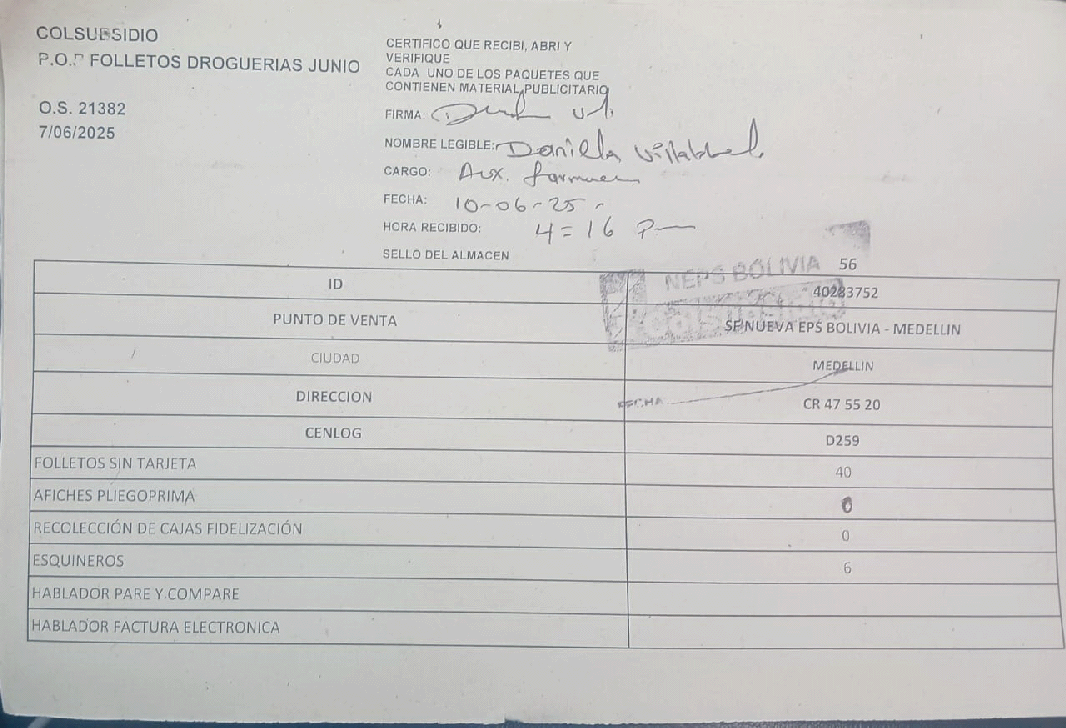 COLSUBSIDIO
P.O.P FOLLETOS DROGUERIAS JUNIO
O.S. 21382
7/06/2025
CERTIFICO QUE RECIBI, ABRI Y
VERIFIQUE
CADA UNO DE LOS PAQUETES QUE
CONTIENEN MATERIAL PUBLICITARIO
FIRMA
NOMBRE LEGIBLE: Daniela
CARGO: Aux.
FECHA: 10-06-25
HORA RECIBIDO: 4=16 P
SELLO DEL ALMACEN
56
NEPS BOLIVIA
Colsubsidio
ID 40283752
PUNTO DE VENTA SF NUEVA EPS BOLIVIA - MEDELLIN
CIUDAD MEDELLIN
FECHA
DIRECCION CR 47 55 20
CENLOG D259
FOLLETOS SIN TARJETA 40
AFICHES PLIEGOPRIMA 0
RECOLECCIÓN DE CAJAS FIDELIZACIÓN 0
ESQUINEROS 6
HABLADOR PARE Y COMPARE
HABLADOR FACTURA ELECTRONICA